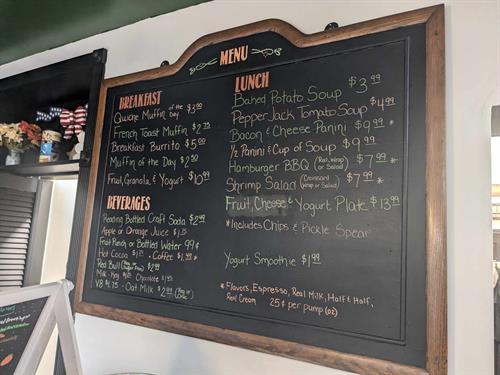 MENU
BREAKFAST
Quiche Muffin of the day $3.00
French Toast Muffin $2.75
Breakfast Burrito $5.00
Muffin of the Day $2.50
Fruit, Granola, & Yogurt $10.99
BEVERAGES
Reading Bottled Craft Soda $2.49
Apple or Orange Juice $1.25
Fruit Punch or Bottled Water 99¢
Hot Cocoa $1.25 - Coffee $1.99*
Red Bull $2.99
Milk - Reg Chocolate
V8 $1.75 - Oat Milk $2.99
LUNCH
Baked Potato Soup $3.99
Pepper Jack Tomato Soup $4.99
Bacon & Cheese Panini $9.99*
1/2 Panini & Cup of Soup $9.99
Hamburger BBQ (Roll, Wrap or Salad) $7.99*
Shrimp Salad (Croissant, Wrap or Salad) $7.99*
Fruit, Cheese & Yogurt Plate $13.99
*Includes Chips & Pickle Spear
Yogurt Smoothie $1.99
*Flavors, Espresso, Real Milk, Half & Half,
Real Cream 25¢ per pump (oz)